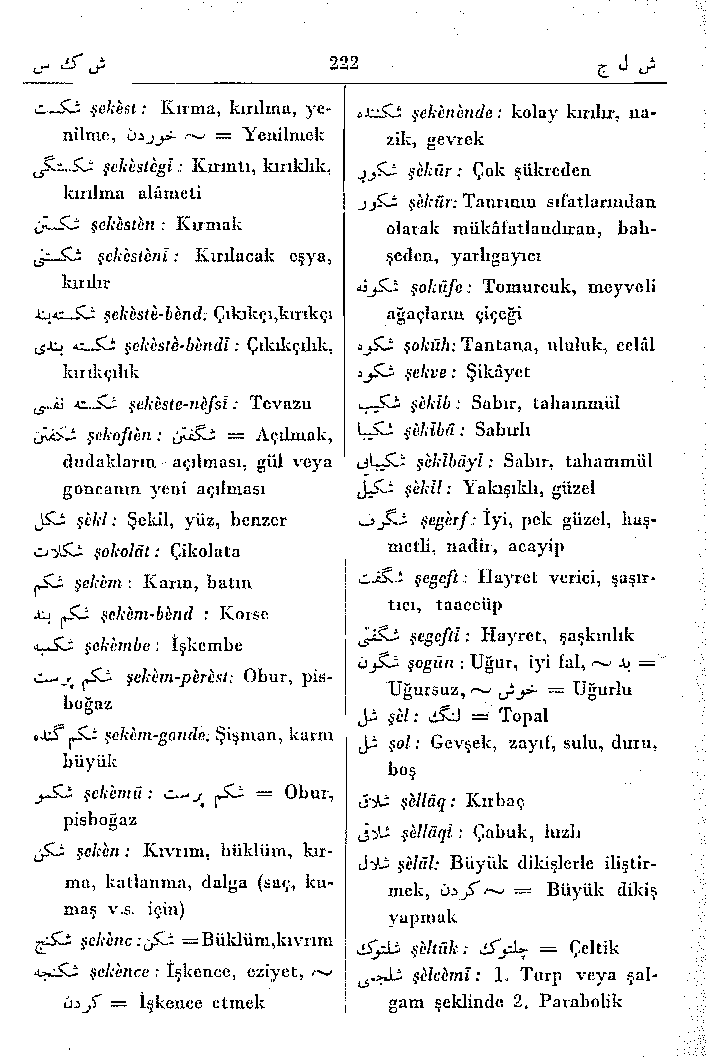 ش ك س 222 ش ل ج
شكست şekèst : Kırma, kırılma, ye-
nilme, ~ خوردن = Yenilmek
شكستگى şekèstègī : Kırıntı, kırıklık,
kırılma alâmeti
شكستن şekèstèn : Kırmak
شكستنى şekèstènī : Kırılacak eşya,
kırılır
شكسته‌بند şekèstè-bènd: Çıkıkçı,kırıkçı
شكسته بندى şekèstè-bèndī : Çıkıkçılık,
kırıkçılık
شكسته نفسى şekèste-nèfsī : Tevazu
شكفتن şekoftèn : شگفتن = Açılmak,
dudakların açılması, gül veya
goncanın yeni açılması
شكل şèkl : Şekil, yüz, benzer
شكلات şokolāt : Çikolata
شكم şekèm : Karın, batın
شكم بند şekèm-bènd : Korse
شكمبه şekèmbe : İşkembe
شكم پرست şekèm-pèrèst: Obur, pis-
boğaz
شكم گنده şekèm-gonde: Şişman, karnı
büyük
شكمو şekèmū : شكم پرست = Obur,
pisboğaz
شكن şekèn : Kıvrım, büklüm, kır-
ma, katlanma, dalga (saç, ku-
maş v.s. için)
شكنج şekènc :شكن =Büklüm,kıvrım
شكنجه şekènce : İşkence, eziyet, ~
كردن = İşkence etmek
شكننده şekènènde : kolay kırılır, na-
zik, gevrek
شكور şèkūr : Çok şükreden
شكور şèkūr: Tanrının sıfatlarından
olarak mükâfatlandıran, bah-
şeden, yarlıgayıcı
شكوفه şokūfe : Tomurcuk, meyveli
ağaçların çiçeği
شكوه şokūh: Tantana, ululuk, celâl
شكوه şekve : Şikâyet
شكيب şèkīb : Sabır, tahammül
شكيبا şèkībā : Sabırlı
شكيبائى şèkībāyī : Sabır, tahammül
شكيل şèkīl : Yakışıklı, güzel
شگرف şegèrf : İyi, pek güzel, haş-
metli, nadir, acayip
شگفت şegeft : Hayret verici, şaşır-
tıcı, taaccüp
شگفتى şegeftī : Hayret, şaşkınlık
شگون şogūn : Uğur, iyi fal, ~ بد =
Uğursuz, ~ خوش = Uğurlu
شل şèl : لنگ = Topal
شل şol : Gevşek, zayıf, sulu, duru,
boş
شلاق şèllāq : Kırbaç
شلاقى şèllāqī : Çabuk, hızlı
شلال şèlāl: Büyük dikişlerle iliştir-
mek, ~ كردن = Büyük dikiş
yapmak
شلتوك şèltūk : چلتوك = Çeltik
شلجمى şèlcèmī : 1. Turp veya şal-
gam şeklinde 2. Parabolik